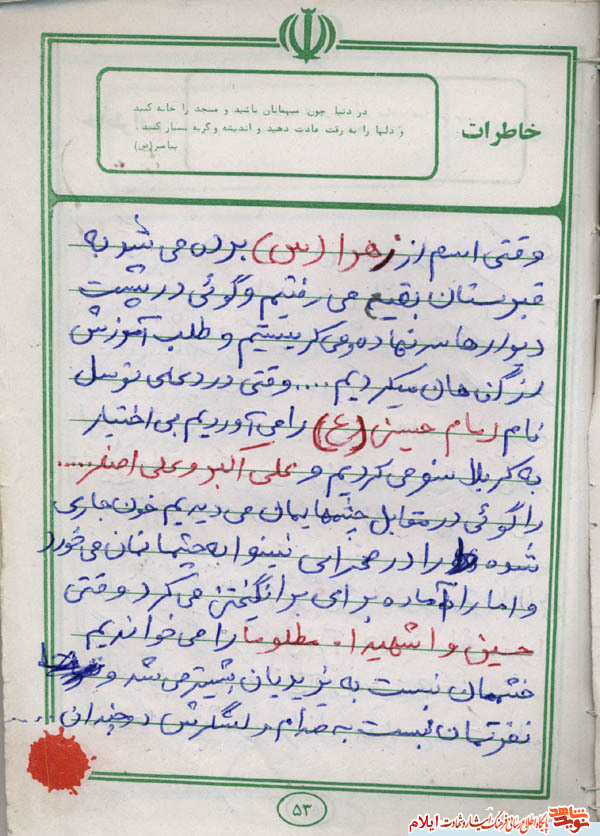 خاطرات
در دنیا چون میهمانان باشید و مسجد را خانه کنید
و دلها را به رقت عادت دهید و اندیشه و گریه بسیار کنید.
پیامبر(ص)
وقتی اسم از زهرا (س) برده می شد به
قبرستان بقیع می رفتیم و گوئی در پشت
دیوارها سر نهاده و می گریستیم و طلب آمرزش
از گناهان میکردیم .... وقتی در دعای توسل
نام امام حسین (ع) را می آوردیم بی اختیار
به کربلا سفر می کردیم و علی اکبر و علی اصغر ....
را گوئی در مقابل چشمهایمان می دیدیم خون جاری
شده را در صحرای نینوا به چشمانمان می خورد
و ما را آماده برای برانگیختن می کرد وقتی
حسین وا شهیدا، مظلوما را می خواندیم
خشممان نسبت به یزیدیان بیشتر می شد و
نفرتمان نسبت به صدام و لشگرش دوچندان ...
۵۳
نوید شاهد
پایگاه اطلاع رسانی فرهنگ ایثار و شهادت ایلام